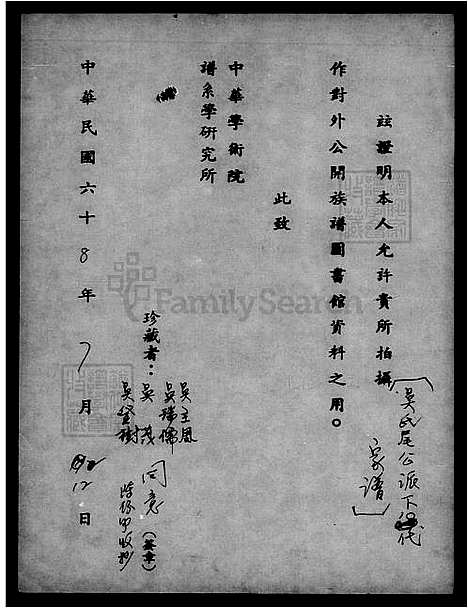 茲證明本人允許貴所拍攝
〔吳氏尾公派下
家譜〕
作對外公開族譜圖書館資料之用。
此致
中華學術院
譜系學研究所
珍藏者：
吳
吳瑞儒
吳茂
吳
同意
（簽章）
中華民國六十8年7月12日
FamilySearch